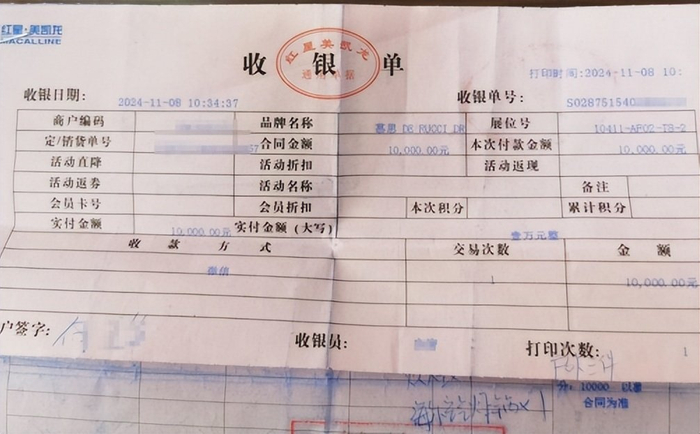 红星·美凯龙
MACALLINE
红星美凯龙
收 银 单
打印时间:2024-11-08 10:
收银日期: 2024-11-08 10:34:37 收银单号: S028751540
商户编码 品牌名称 慕思 DE RUCCI DR 展位号 10411-AF02-T8-2
定/销货单号 57 合同金额 10,000.00元 本次付款金额 10,000.00元
活动直降 活动折扣 活动返现
活动返券 活动名称 备注
会员卡号 会员折扣 本次积分 累计积分
实付金额 10,000.00元 实付金额(大写) 壹万元整
收 款 方 式 交易次数 金 额
微信 1 10,000.00元
户签字: 收银员: 打印次数: 1
分: 10000 以票
合同为准